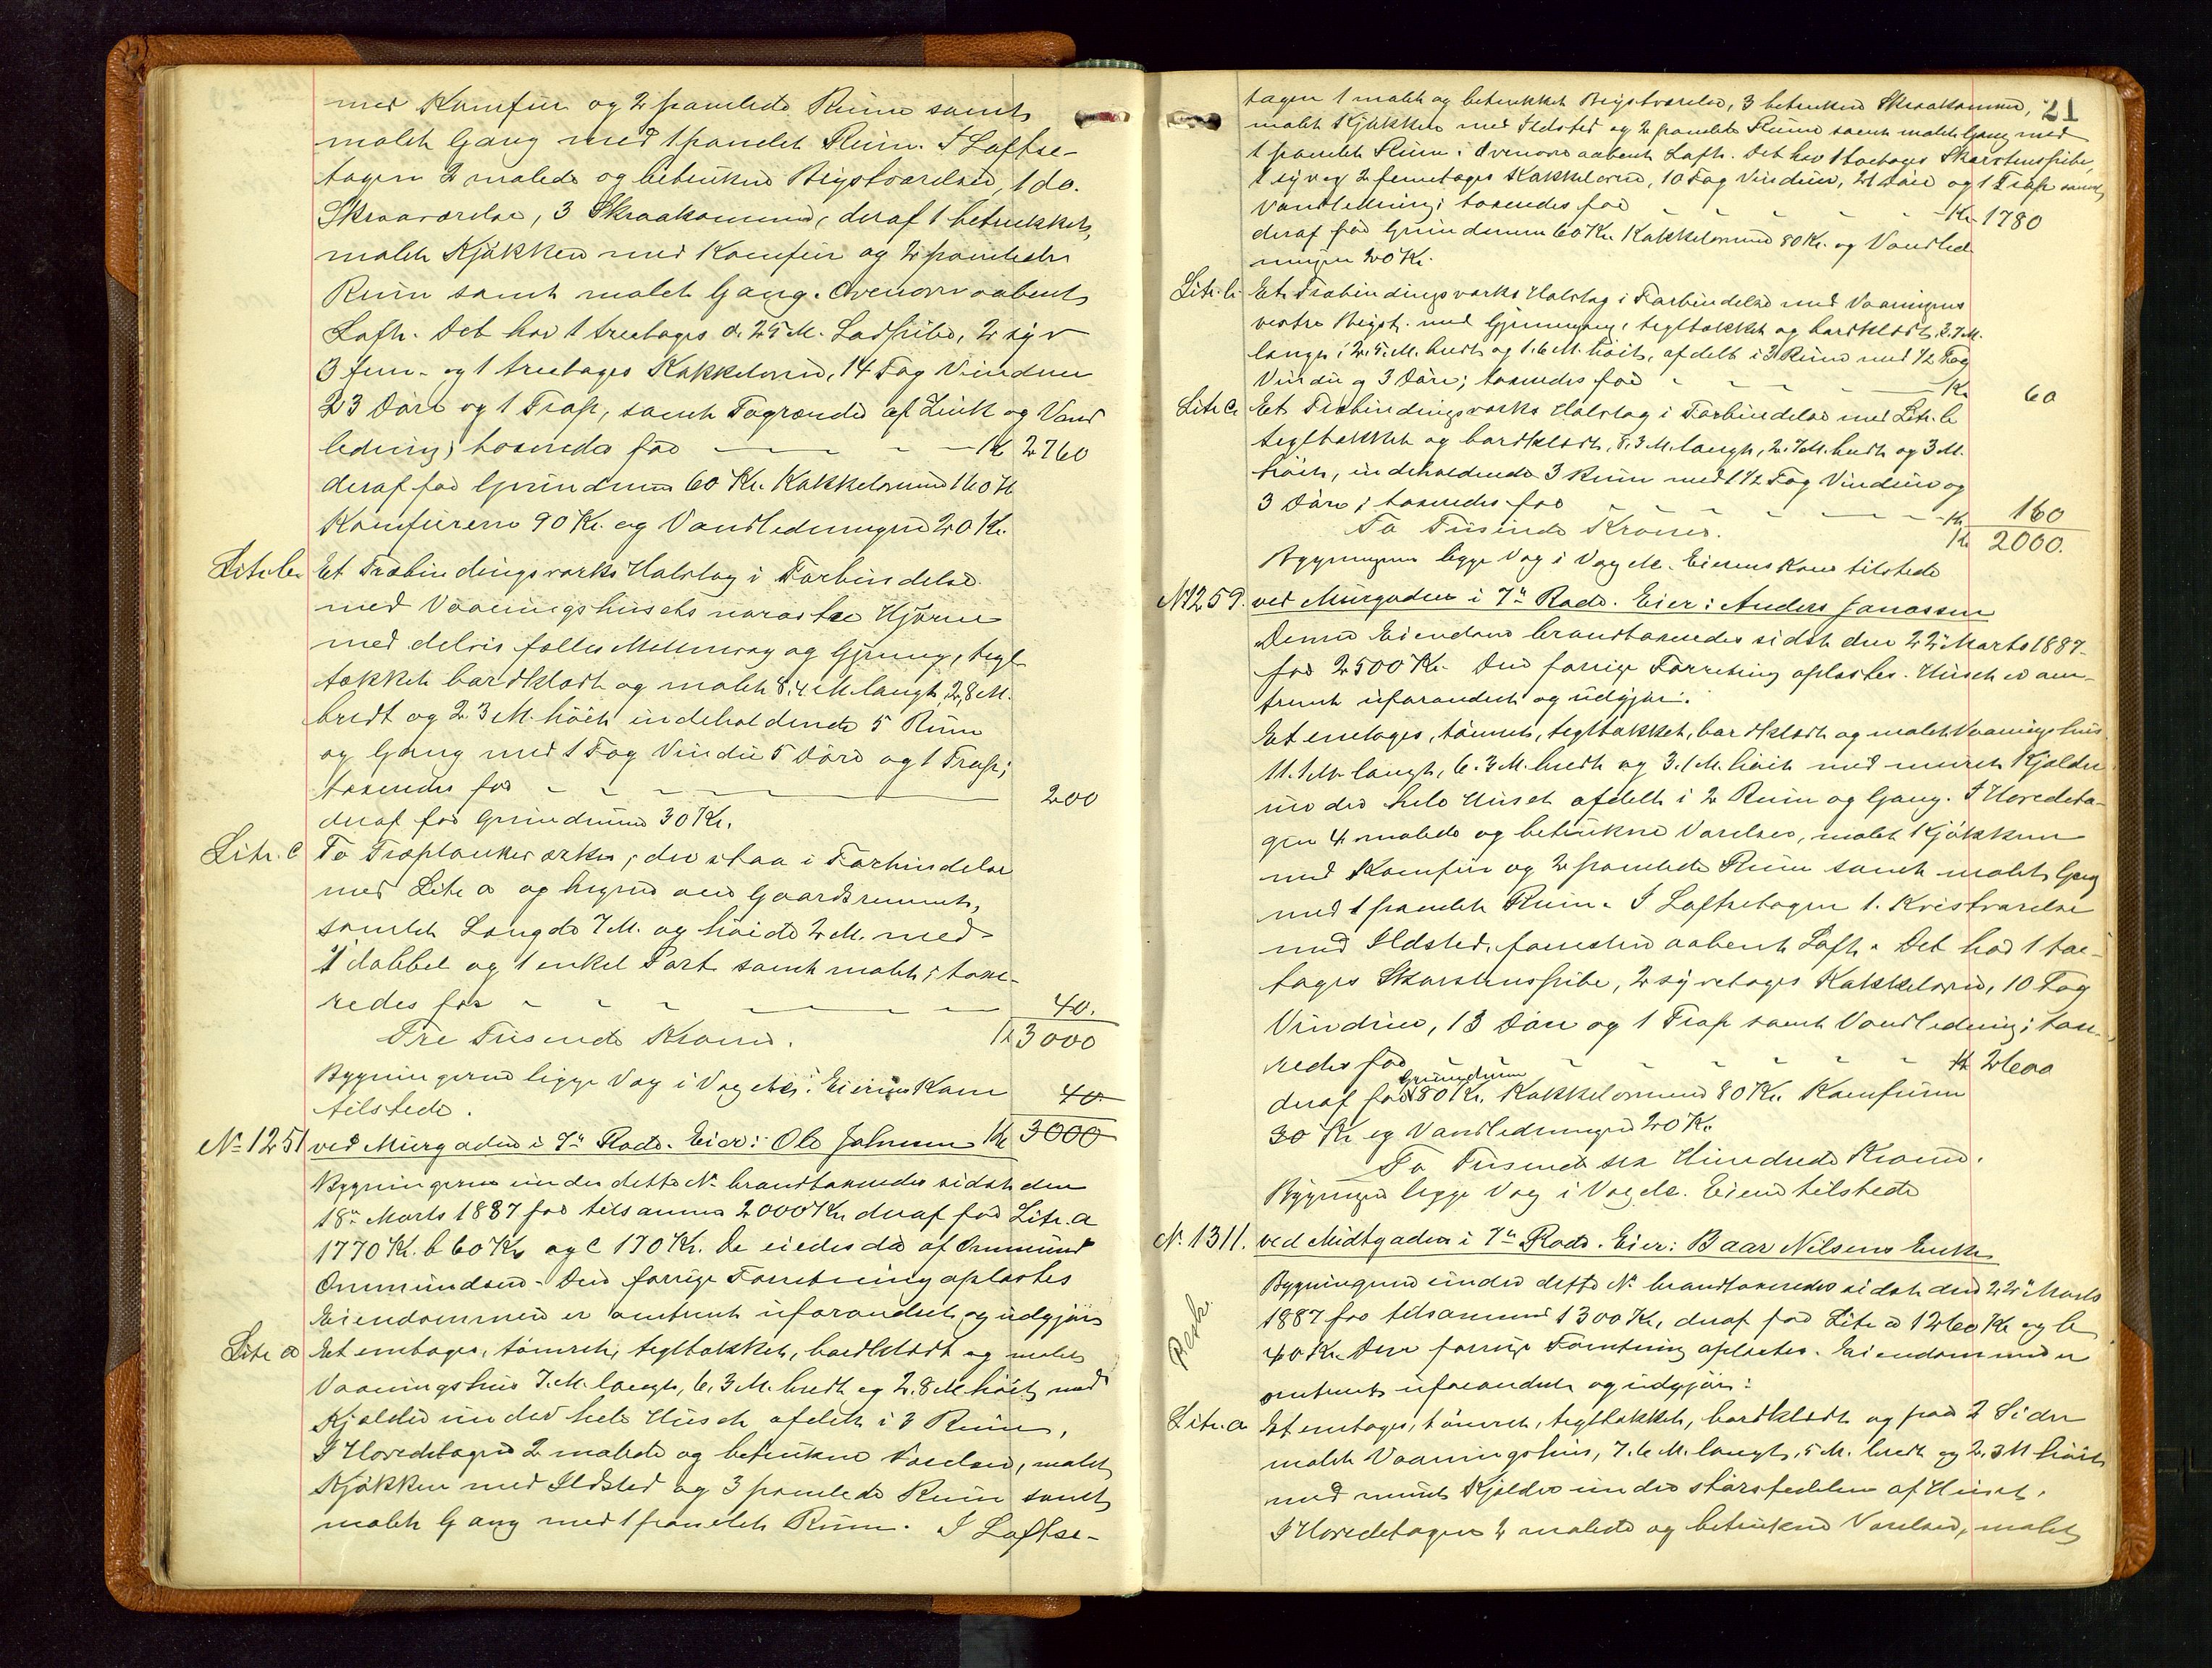 med Komfur og 2 panelede Rum samt
malet Gang med 1 panelet Rum. I Loftse-
tagen 2 malede og betrukne Bigstværelser, 1 do.
Skraaværelse, 3 Skraakammere, deraf 1 betrukket,
malet Kjøkken med Komfur og 2 panelede
Rum samt malet Gang. Ovenover aabent
Loft. Det har 1 treetages 2.25 M. Ladpibe, 2 syv
3 fem- og 1 treetages Kakkelovne, 14 Fag Vinduer
23 Døre og 1 Trap, samt Tagrende af Zink og Vand
ledning; taxeredes for - Kr 2760
deraf for Grundmur 60 Kr. Kakkelovnene 160 Kr
Komfurerne 90 Kr. og Vandledningen 20 Kr.
Litr. b. Et Træbindingsværks Halvtag i Forbindelse
med Vaaningshusets nordøstre Hjørne
med delvis fælles Mellemvæg og Gjerung, tegl
tækket bordklædt og malet 8.4 M. langt, 2,8 M.
bredt og 2.3 M. höit indeholdende 5 Rum
og Gang med 1 Fag Vindu 5 Døre og 1 Trap;
taxeredes for - 200
deraf for Grundmur 30 Kr.
Litr. c To Træplankeværker, der staa i Forbindelse
med Litr a og hegne om Gaardsrummet,
samlet Længde 7 M. og høide 2 M. med
1 dobbel og 1 enkel Port samt malet; taxe-
redes for - 40.
Tre Tusende Kroner. Kr 3000
Bygningerne ligge Væg i Væg etc. Eierens Kone 40
tilstede.
No 1251 ved Murgaden i 7de Rode. Eier: Ole Johnsen Kr 3000
Bygningerne under dette No brandtaxeredes sidst den
18de Marts 1887 for tilsammen 2000 Kr deraf for Litr. a
1770 Kr. b 60 Kr og c 170 Kr. De eiedes da af Ommund
Ommundsen. Den forrige Forretning oplæstes
Eiendommen er omtrent uforandret og udgjør:
Litr a Et enetages, tømret, tegltækket, bordklædt og malet
Vaaningshus 7. M. langt, 6,3 M. bredt og 2.8 M höit med
Kjelder under hele Huset afdelt i 3 Rum,
I Hovedetagen 2 malede og betrukne Værelser, malet
Kjøkken med Ildsted og 3 panelede Rum samt
malet Gang med 1 panelet Rum. I Loftse-
21
tagen 1 malet og betrukket Bigstværelse, 3 betrukne Skraakammere,
malet Kjøkken med Ildsted og 2 panelede Rum samt malet Gang med
1 panelet Rum; Ovenover aabent Loft. Det har 1 toetages Skorstenspibe,
1 syv og 2 femetages Kakkelovne, 10 Fag Vinduer, 21 Døre og 1 Trap samt
Vandledning; taxeredes for - Kr 1780
deraf for Grundmur 60 Kr. Kakkelovnene 80 Kr. og Vandled
ningen 20 Kr.
Litr. b. Et Træbindingsværks Halvtag i Forbindelse med Vaaningens
vestre Bigst. med Gjerung, tegltækket og bordklædt, 2.7 M.
langt, 2.5 M. bredt og 1.6 M. höit, afdelt i 3 Rum med 1/2 Fag
Vindu og 3 Døre; taxeredes for - Kr 60
Litr c. Et Træbindingsværks Halvtag i Forbindelse med Litr. b
tegltækket og bordklædt, 8,3 M. langt, 2.7 M. bredt og 3 M.
höit, indeholdende 3 Rum med 1 1/2 Fag Vinduer og
3 Døre; taxeredes for - Kr 160
To Tusende Kroner. Kr 2000.
Bygningerne ligge Væg i Væg etc. Eierens Kone tilstede
No 1259. ved Murgaden i 7de Rode. Eier: Anders Jonassen
Denne Eiendom brandtaxeredes sidst den 22de Marts 1887
for 2500 Kr. Den forrige Forretning oplæstes. Huset er om-
trent uforandret og udgjør:
Et enetages, tømret, tegltækket, bordklædt og malet Vaaningshus
11.1 M. langt, 6.3 M. bredt og 3.1 M. höit med muret Kjelder
under hele Huset afdelt i 2 Rum og Gang. I Hovedeta-
gen 4 malede og betrukne Værelser, malet Kjøkken
med Komfur og 2 panelede Rum samt malet Gang
med 1 panelet Rum. I Loftsetagen 1 Kvistværelse
med Ildsted, forresten aabent Loft. Det har 1 toe-
tages Skorstenspibe, 2 syvetages Kakkelovne, 10 Fag
Vinduer, 13 Døre og 1 Trap samt Vandledning; taxe-
redes for - Kr 2600
deraf for Grundmur 180 Kr. Kakkelovnene 80 Kr. Komfuren
30 Kr og Vandledningen 20 Kr.
To Tusende sex Hundrede Kroner.
Bygningen ligge Væg i Væg etc. Eieren tilstede
No. 1311. ved Midtgaden i 7de Rode. Eier: Baar Nilsens Enke
Bygningerne under dette No brandtaxeredes sidst den 22de Marts
1887 for tilsammen 1300 Kr, deraf for Litr a 1260 Kr og b
40 Kr. Den forrige Forretning oplæstes. Eiendommen er
omtrent uforandret og udgjør:
Litr. a Et enetages, tømret, tegltækket, bordklædt og paa 2 Sider
malet Vaaningshus, 7.6 M. langt, 5 M. bredt og 2,3 M höit
med muret Kjelder under størstedelen af Huset.
I Hovedetagen 2 malede og betrukne Værelser, malet